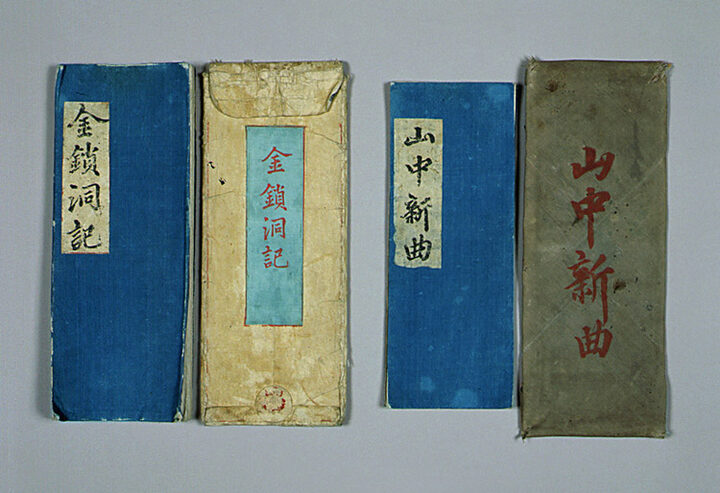 金鎖洞記
金鎖洞記
山中新曲
山中新曲